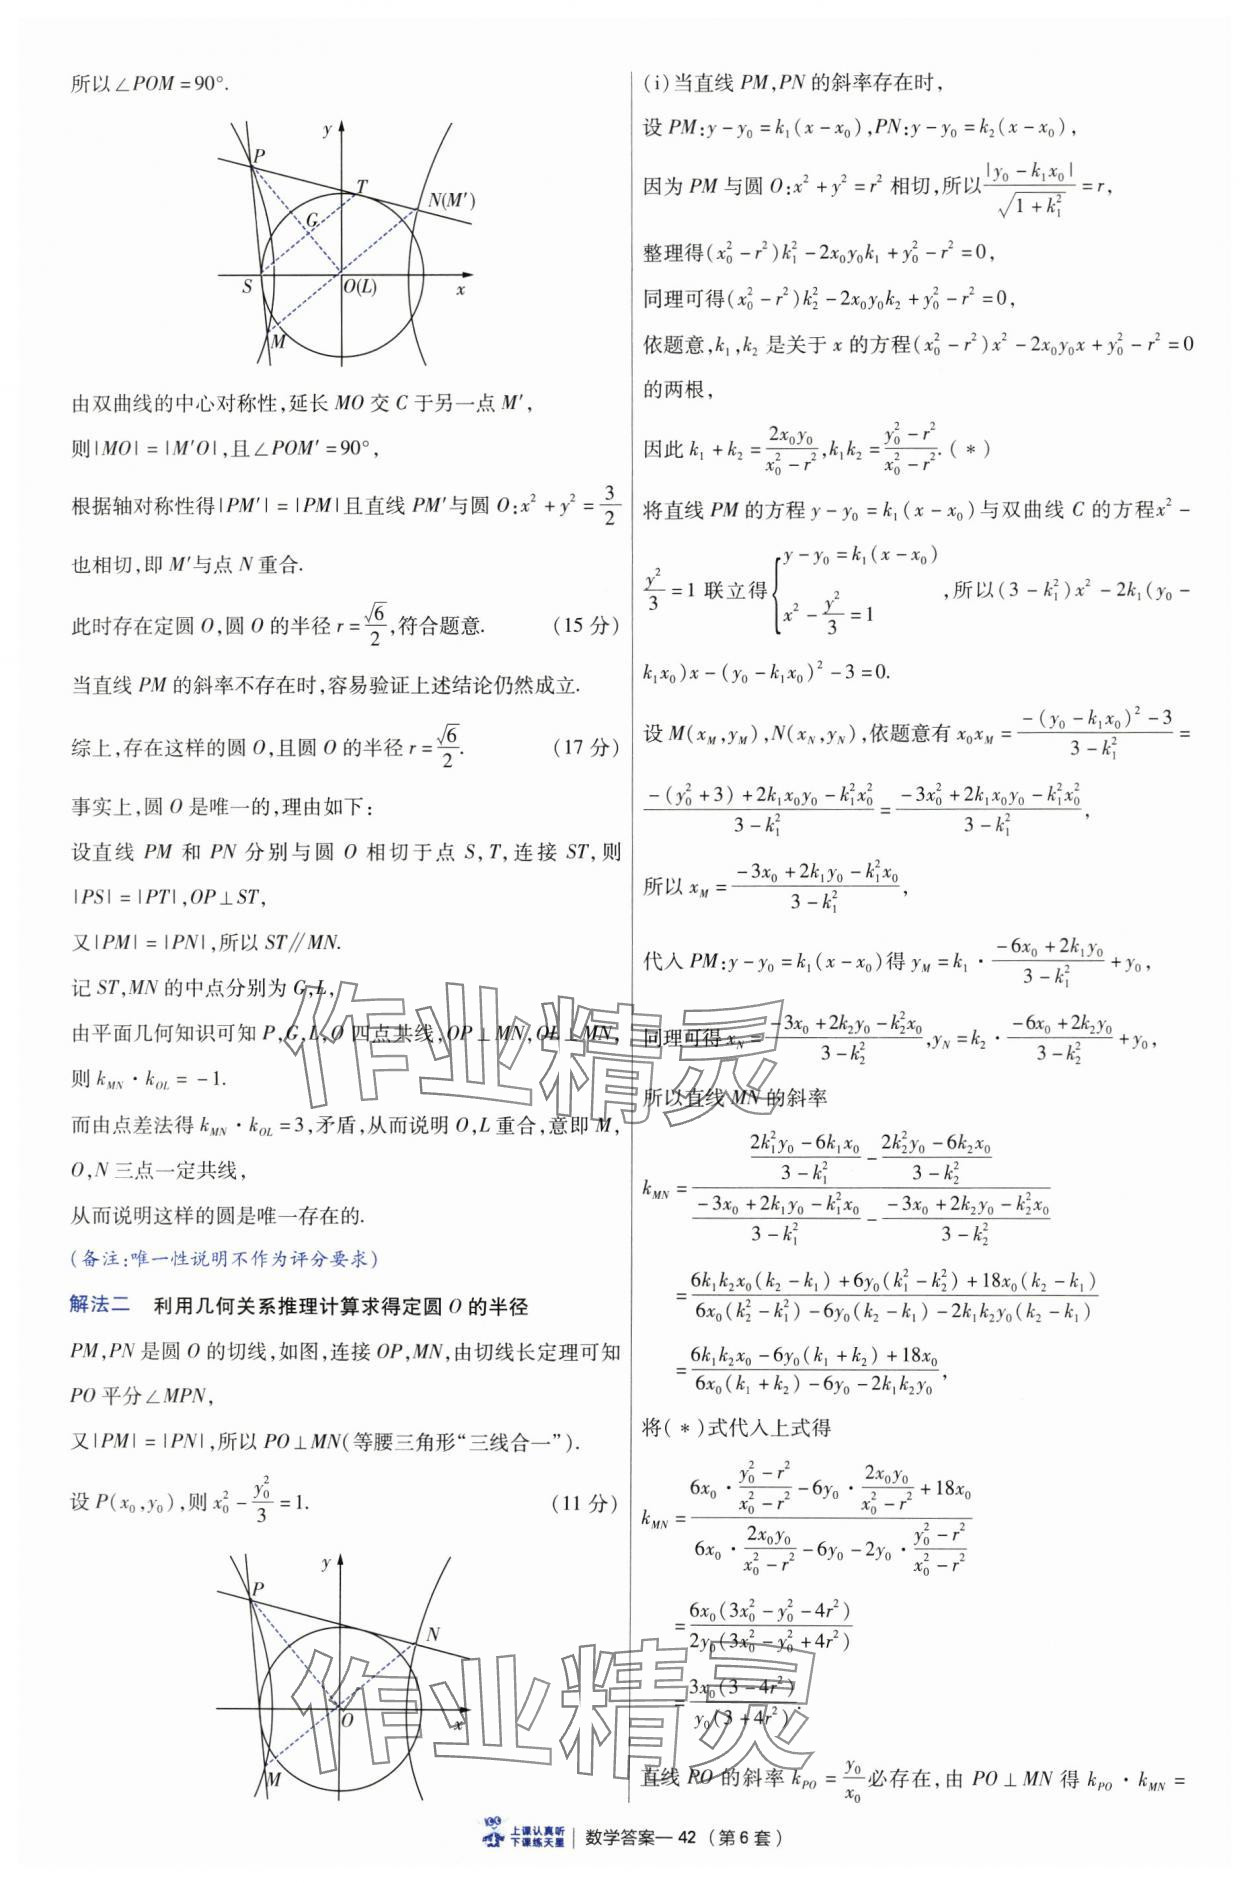 所以∠POM=90°.
y
P
T
N(M′)
G
S
O(L)
x
M
由双曲线的中心对称性,延长 MO 交 C 于另一点 M′,
则|MO|=|M′O|,且∠POM′=90°,
根据轴对称性得|PM′|=|PM|且直线 PM′与圆 O:x²+y²=3/2
也相切,即 M′与点 N 重合.
此时存在定圆 O,圆 O 的半径 r=√6/2,符合题意. (15 分)
当直线 PM 的斜率不存在时,容易验证上述结论仍然成立.
综上,存在这样的圆 O,且圆 O 的半径 r=√6/2. (17 分)
事实上,圆 O 是唯一的,理由如下:
设直线 PM 和 PN 分别与圆 O 相切于点 S,T,连接 ST,则
|PS|=|PT|,OP⊥ST,
又|PM|=|PN|,所以 ST∥MN.
记 ST,MN 的中点分别为 G,L,
由平面几何知识可知 P,G,L,O 四点共线,OP⊥MN,OL⊥MN,
则 k_MN·k_OL=-1.
而由点差法得 k_MN·k_OL=3,矛盾,从而说明 O,L 重合,意即 M,
O,N 三点一定共线,
从而说明这样的圆是唯一存在的.
(备注:唯一性说明不作为评分要求)
解法二 利用几何关系推理计算求得定圆 O 的半径
PM,PN 是圆 O 的切线,如图,连接 OP,MN,由切线长定理可知
PO 平分∠MPN,
又|PM|=|PN|,所以 PO⊥MN(等腰三角形“三线合一”).
设 P(x₀,y₀),则 x₀²-y₀²/3=1. (11 分)
y
P
N
O
x
M
(i)当直线 PM,PN 的斜率存在时,
设 PM:y-y₀=k₁(x-x₀),PN:y-y₀=k₂(x-x₀),
因为 PM 与圆 O:x²+y²=r² 相切,所以|y₀-k₁x₀|/√(1+k₁²)=r,
整理得(x₀²-r²)k₁²-2x₀y₀k₁+y₀²-r²=0,
同理可得(x₀²-r²)k₂²-2x₀y₀k₂+y₀²-r²=0,
依题意,k₁,k₂ 是关于 x 的方程(x₀²-r²)x²-2x₀y₀x+y₀²-r²=0
的两根,
因此 k₁+k₂=2x₀y₀/(x₀²-r²),k₁k₂=(y₀²-r²)/(x₀²-r²).(*)
将直线 PM 的方程 y-y₀=k₁(x-x₀)与双曲线 C 的方程x²-
y²/3=1 联立得{y-y₀=k₁(x-x₀) x²-y²/3=1,所以(3-k₁²)x²-2k₁(y₀-
k₁x₀)x-(y₀-k₁x₀)²-3=0.
设 M(x_M,y_M),N(x_N,y_N),依题意有 x₀x_M=(-(y₀-k₁x₀)²-3)/(3-k₁²)=
(-(y₀²+3)+2k₁x₀y₀-k₁²x₀²)/(3-k₁²)=(-3x₀²+2k₁x₀y₀-k₁²x₀²)/(3-k₁²),
所以 x_M=(-3x₀+2k₁y₀-k₁²x₀)/(3-k₁²),
代入 PM:y-y₀=k₁(x-x₀)得 y_M=k₁·(-6x₀+2k₁y₀)/(3-k₁²)+y₀,
同理可得 x_N=(-3x₀+2k₂y₀-k₂²x₀)/(3-k₂²),y_N=k₂·(-6x₀+2k₂y₀)/(3-k₂²)+y₀,
所以直线 MN 的斜率
k_MN=((2k₁²y₀-6k₁x₀)/(3-k₁²)-(2k₂²y₀-6k₂x₀)/(3-k₂²))/((-3x₀+2k₁y₀-k₁²x₀)/(3-k₁²)-(-3x₀+2k₂y₀-k₂²x₀)/(3-k₂²))
=(6k₁k₂x₀(k₂-k₁)+6y₀(k₁²-k₂²)+18x₀(k₂-k₁))/(6x₀(k₂²-k₁²)-6y₀(k₂-k₁)-2k₁k₂y₀(k₂-k₁))
=(6k₁k₂x₀-6y₀(k₁+k₂)+18x₀)/(6x₀(k₁+k₂)-6y₀-2k₁k₂y₀),
将(*)式代入上式得
k_MN=(6x₀·(y₀²-r²)/(x₀²-r²)-6y₀·2x₀y₀/(x₀²-r²)+18x₀)/(6x₀·2x₀y₀/(x₀²-r²)-6y₀-2y₀·(y₀²-r²)/(x₀²-r²))
=6x₀(3x₀²-y₀²-4r²)/(2y₀(3x₀²-y₀²+4r²))
=3x₀(3-4r²)/(y₀(3+4r²)).
直线 PO 的斜率 k_PO=y₀/x₀必存在,由 PO⊥MN 得 k_PO·k_MN=
作业精灵
作业精灵
上课认真听
下课练天星
数学答案—42(第6套)